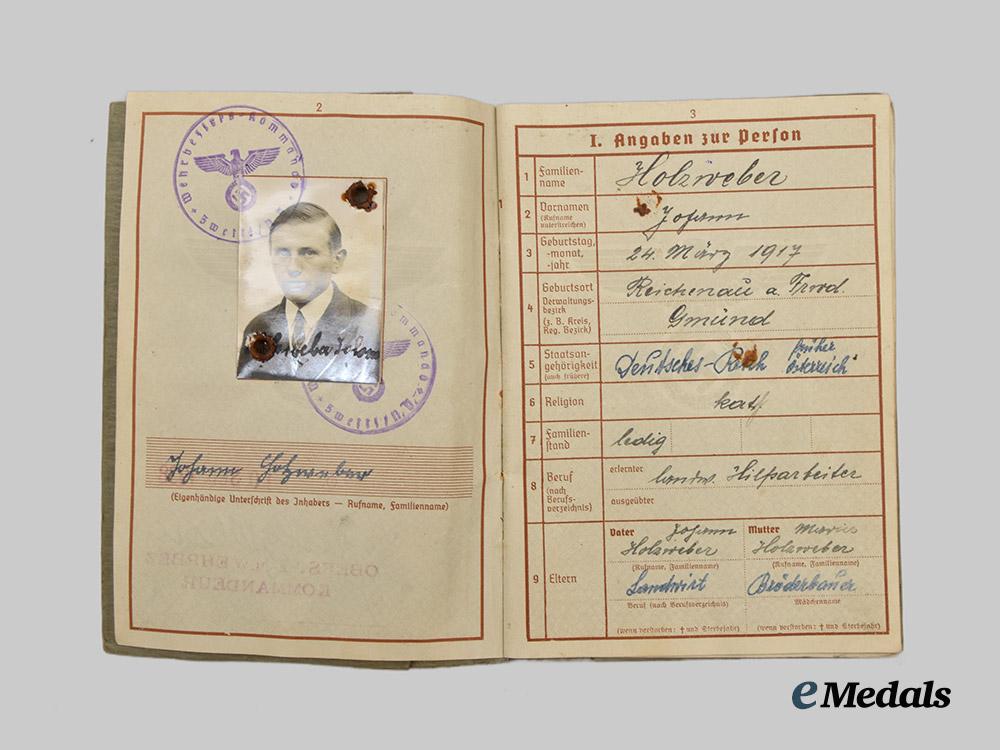 2
Wehrbezirks-Kommando
Zwettl/N.D.
Wehrbezirks-Kommando
Zwettl/N.D.
Johann Holzweber
(Eigenhändige Unterschrift des Inhabers — Rufname, Familienname)
OBERST U. WEHRBEZ
KOMMANDEUR
3
I. Angaben zur Person
1 Familien-name Holzweber
2 Vornamen (Rufname unterstreichen) Johann
3 Geburtstag, -monat, -jahr 24. März 1917
4 Geburtsort Verwaltungs-bezirk (z. B. Kreis, Reg. Bezirk) Reichenau a.
Gmünd
5 Staatsan-gehörigkeit (auch frühere) Deutsches-Reich früher Österreich
6 Religion kath.
7 Familien-stand ledig
8 Beruf (nach Berufs-verzeichnis) erlernter landw. Hilfsarbeiter
ausgeübter
9 Eltern
Vater Johann Mutter Maria
Holzweber Holzweber
(Rufname, Familienname) (Rufname, Familienname)
Landwirt Bröderbauer
Beruf (nach Berufsverzeichnis) Mädchenname
(wenn verstorben: † und Sterbejahr) (wenn verstorben: † und Sterbejahr)
eMedals